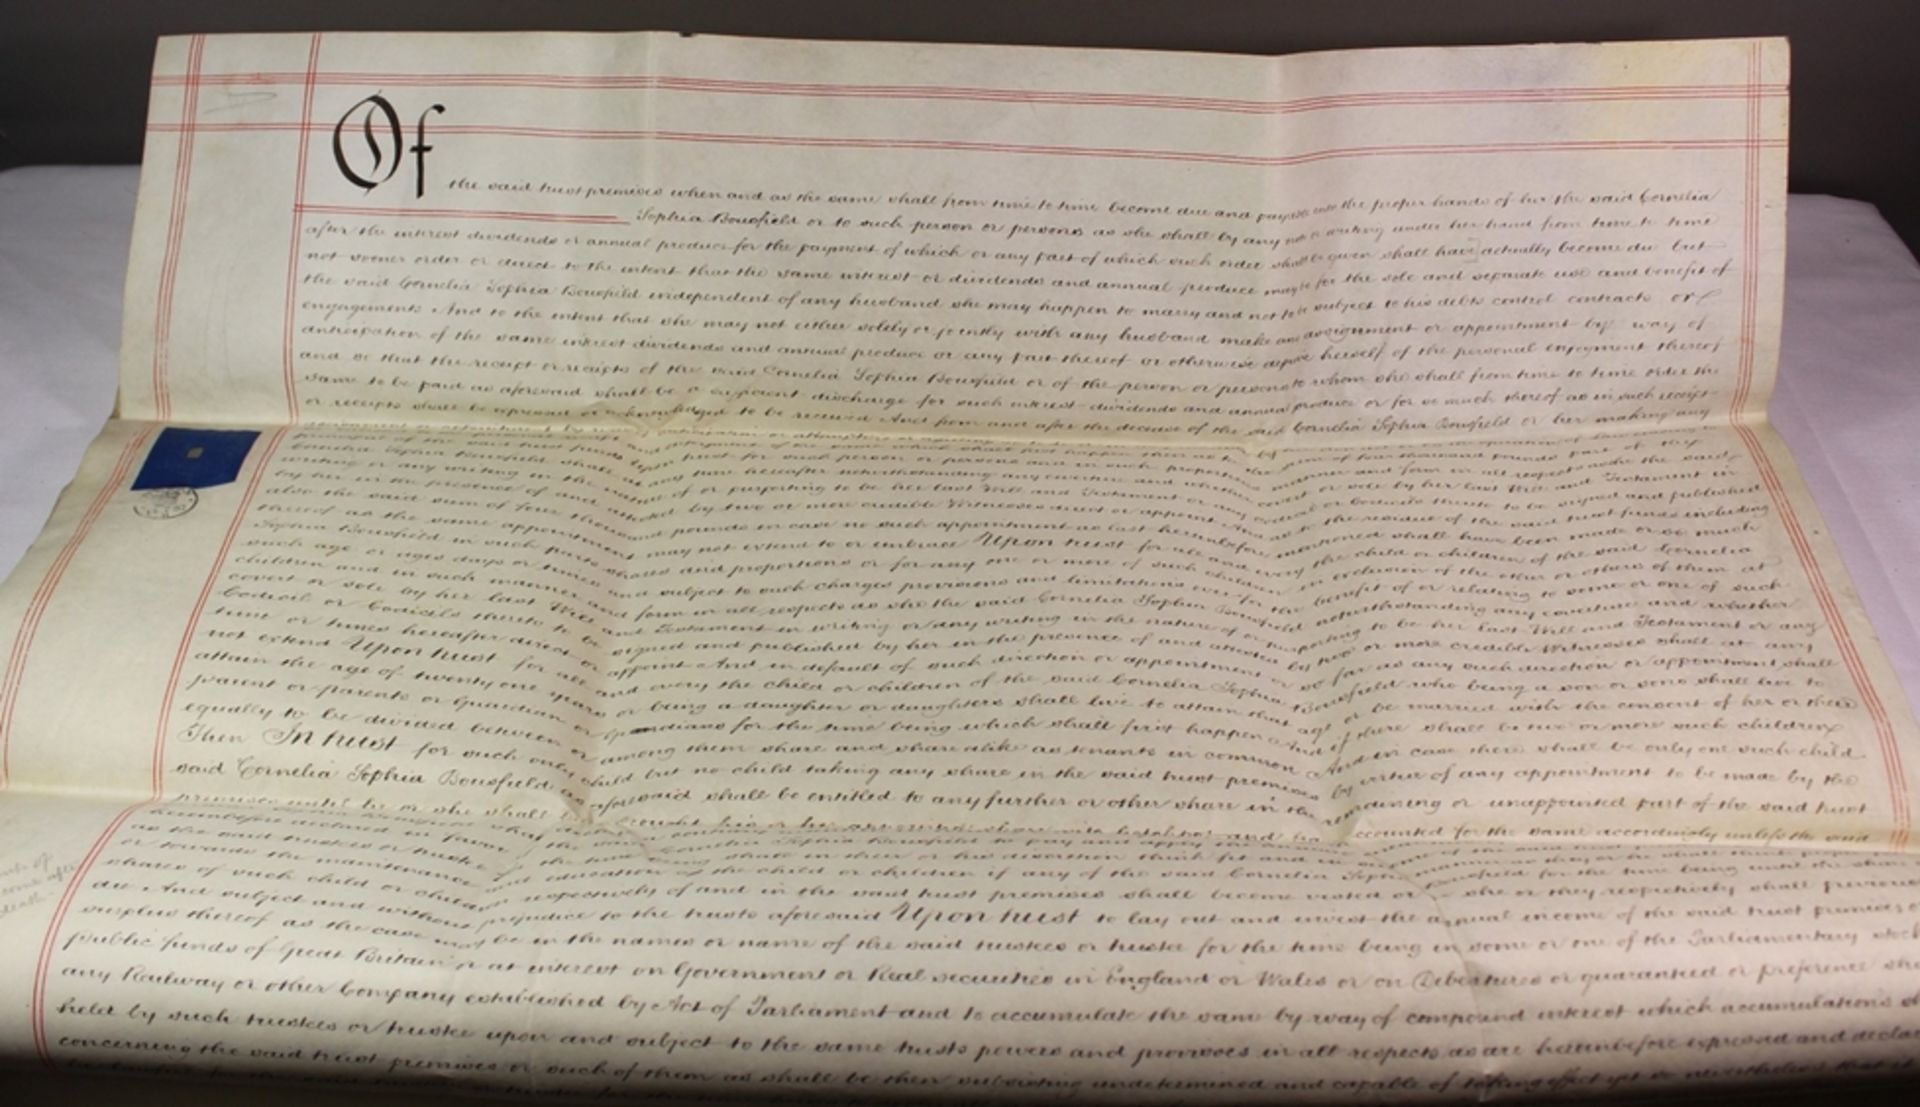 Of
the said trust premises when and as the same shall from time to time become due and payable into the proper hands of her the said Cornelia
Sophia Bousfield or to such person or persons as she shall by any note or writing under her hand from time to time
after the interest dividends or annual produce for the payment of which or any part of which such order shall be given shall have actually become due but
not sooner order or direct to the intent that the same interest or dividends and annual produce may be for the sole and separate use and benefit of
the said Cornelia Sophia Bousfield independent of any husband she may happen to marry and not to be subject to his debts control contracts or
engagements And to the intent that she may not either solely or jointly with any husband make any assignment or appointment by way of
anticipation of the same interest dividends and annual produce or any part thereof or otherwise deprive herself of the personal enjoyment thereof
and so that the receipt or receipts of the said Cornelia Sophia Bousfield or of the person or persons to whom she shall from time to time order the
same to be paid as aforesaid shall be a sufficient discharge for such interest dividends and annual produce or for so much thereof as in such receipt
or receipts shall be expressed or acknowledged to be received And from and after the decease of the said Cornelia Sophia Bousfield or her making any
Cornelia Sophia Bousfield shall at any time hereafter notwithstanding any coverture and whether covert or sole by her last Will and Testament in
writing or any writing in the nature of or purporting to be her last Will and Testament or any codicil or codicils thereto to be signed and published
by her in the presence of and attested by two or more credible Witnesses direct or appoint And as to the residue of the said trust funds including
also the said sum of four thousand pounds in case no such appointment as last hereinbefore mentioned shall have been made or so much
thereof as the same appointment may not extend to or embrace Upon trust for all and every the child or children of the said Cornelia
Sophia Bousfield in such parts shares and proportions or for any one or more of such children in exclusion of the other or others of them at
such age or ages days or times and subject to such charges provisions and limitations over for the benefit of or relating to some or one of such
children and in such manner and form in all respects as she the said Cornelia Sophia Bousfield notwithstanding any coverture and whether
covert or sole by her last Will and Testament in writing or any writing in the nature of or purporting to be her last Will and Testament or any
Codicil or Codicils thereto to be signed and published by her in the presence of and attested by two or more credible Witnesses shall at any
time or times hereafter direct or appoint And in default of such direction or appointment or so far as any such direction or appointment shall
not extend Upon trust for all and every the child or children of the said Cornelia Sophia Bousfield who being a son or sons shall live to
attain the age of twenty one years or being a daughter or daughters shall live to attain that age or be married with the consent of her or their
parent or parents or Guardian or Guardians for the time being which shall first happen And if there shall be two or more such children
equally to be divided between or among them share and share alike as tenants in common And in case there shall be only one such child
Then In trust for such only child but no child taking any share in the said trust premises by virtue of any appointment to be made by the
said Cornelia Sophia Bousfield as aforesaid shall be entitled to any further or other share in the remaining or unappointed part of the said trust
premises until he or she shall brought his or her and accounted for the same accordingly unless the said
as the said trustees or trustee for the time being in their or his discretion think fit and in
or towards the maintenance and education of the child or children if any of the said Cornelia Sophia Bousfield for the time being until the share or
shares of such child or children respectively of and in the said trust premises shall become vested or she or they respectively shall previously
die And subject and without prejudice to the trusts aforesaid Upon trust to lay out and invest the annual income of the said trust premises or
surplus thereof as the case may be in the names or name of the said trustees or trustee for the time being in some or one of the Parliamentary stocks
public funds of Great Britain or at interest on Government or Real securities in England or Wales or on Debentures or guaranteed or preference
any Railway or other Company established by Act of Parliament and to accumulate the same by way of compound interest which accumulations
held by such trustees or trustee upon and subject to the same trusts powers and provisoes in all respects as are hereinbefore expressed and
concerning the said trust premises or such of them as shall be then subsisting undetermined and capable of taking effect yet so nevertheless that it